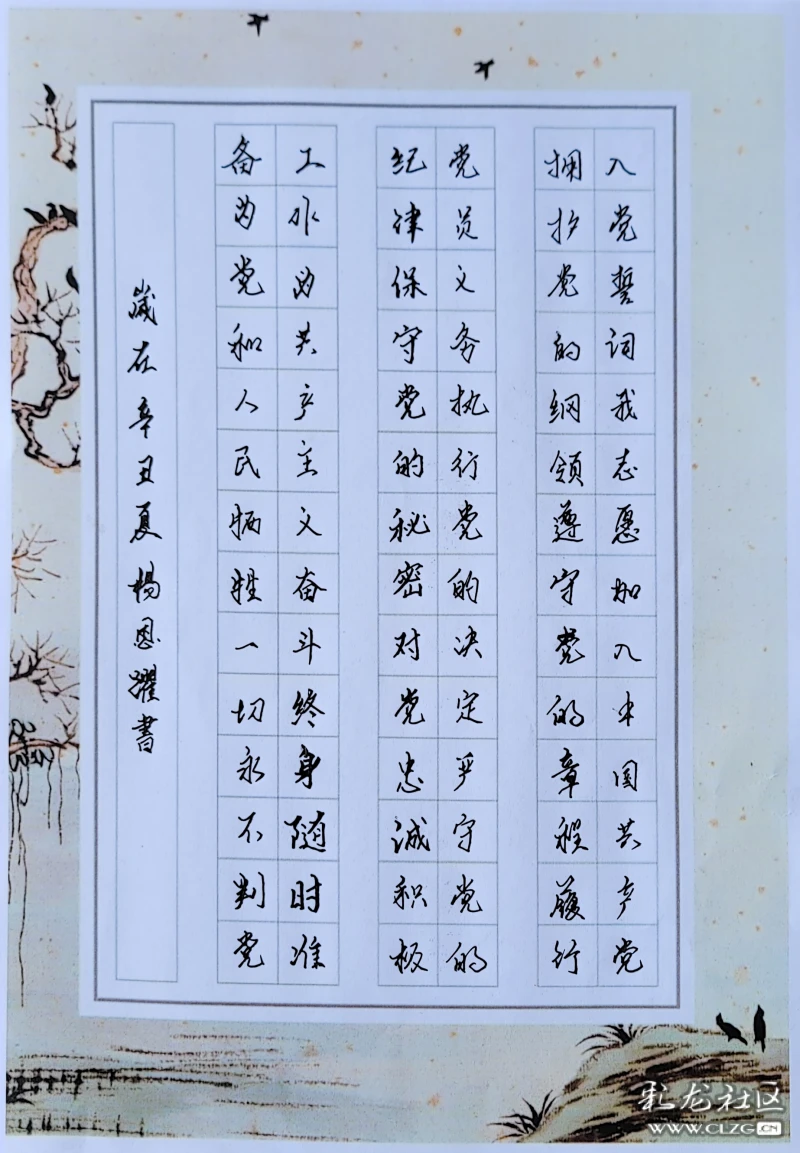 入党誓词我志愿加入中国共产党
拥护党的纲领遵守党的章程履行
党员义务执行党的决定严守党的
纪律保守党的秘密对党忠诚积极
工作为共产主义奋斗终身随时准
备为党和人民牺牲一切永不判党
歲在辛丑夏楊恩濯書
彩龙社区
WWW.CLZG.CN